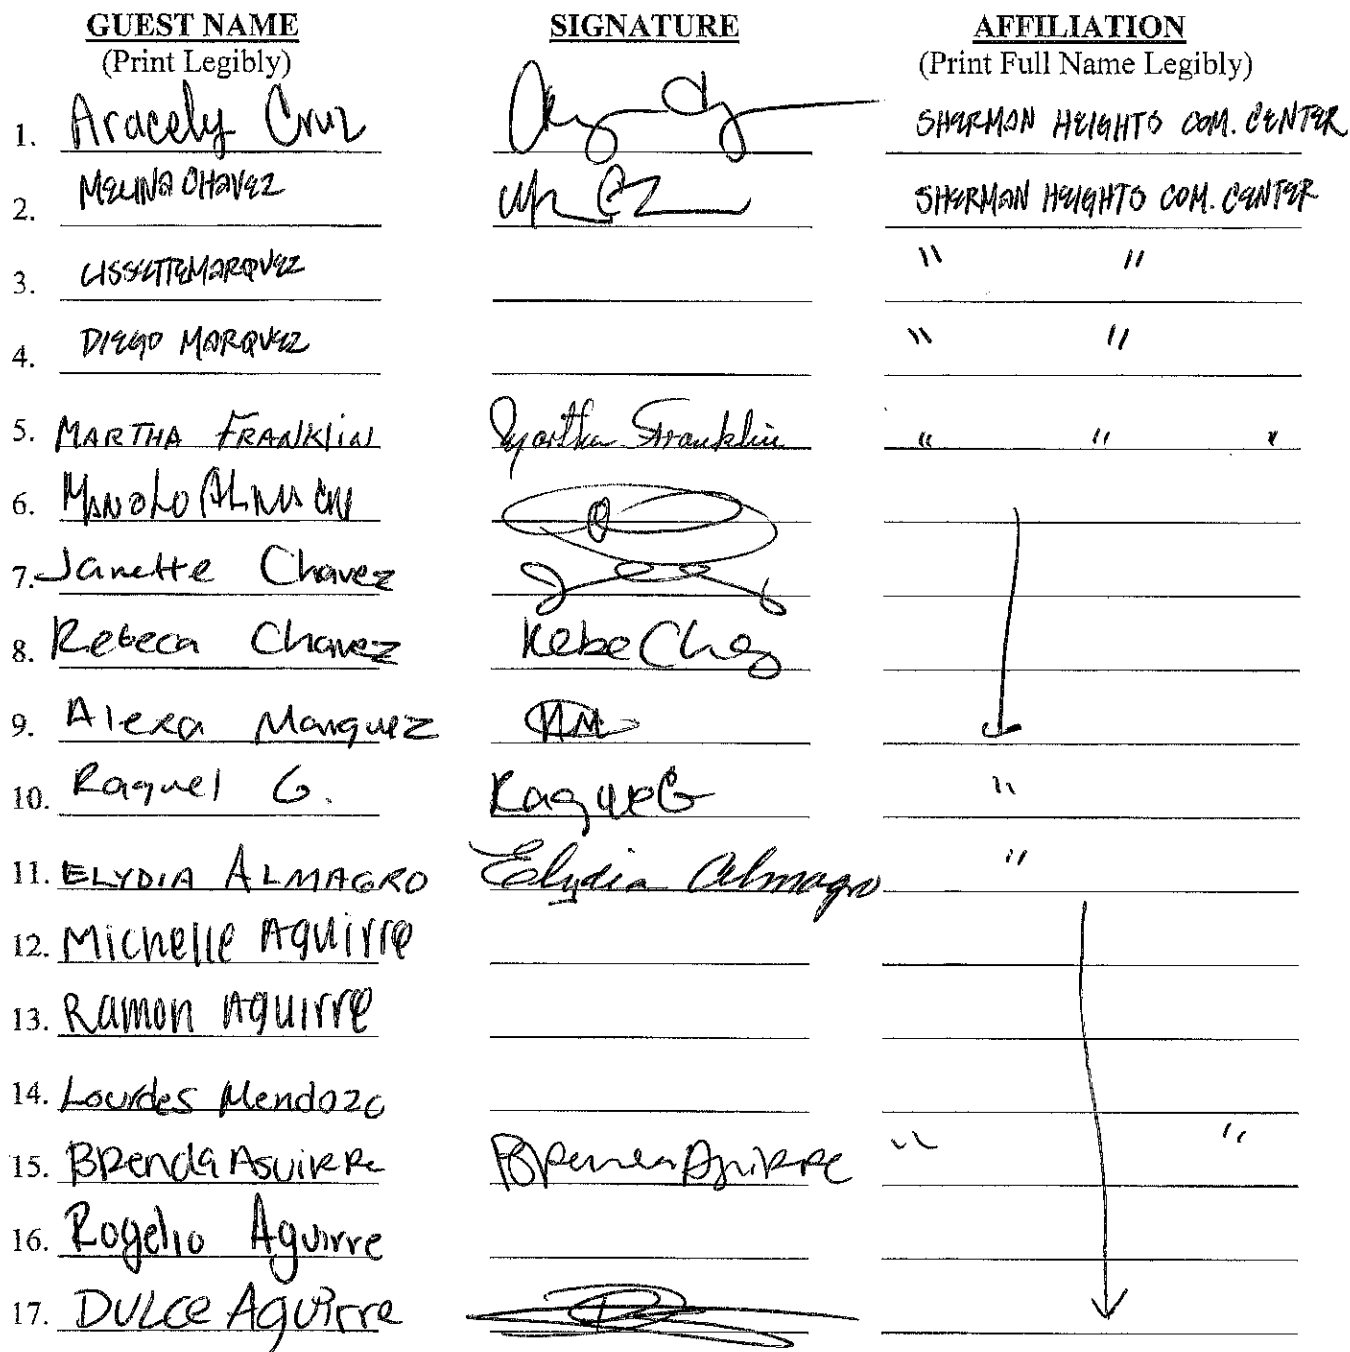 GUEST NAME SIGNATURE AFFILIATION
(Print Legibly) (Print Full Name Legibly)
1. Aracely Cruz SHERMAN HEIGHTS COM. CENTER
2. MELINA CHAVEZ SHERMAN HEIGHTS COM. CENTER
3. LISSETTE MARQUEZ " "
4. DIEGO MARQUEZ " "
5. MARTHA FRANKLIN Martha Franklin " " "
6. MANOLO
7. Janette Chavez
8. Rebeca Chavez
9. Alexa Marquez
10. Raquel G. Raquel G "
11. ELYDIA ALMAGRO Elydia Almagro "
12. Michelle Aguirre
13. Ramon Aguirre
14. Lourdes Mendoza
15. Brenda Aguirre Brenda Aguirre " "
16. Rogelio Aguirre
17. DULCE Aguirre